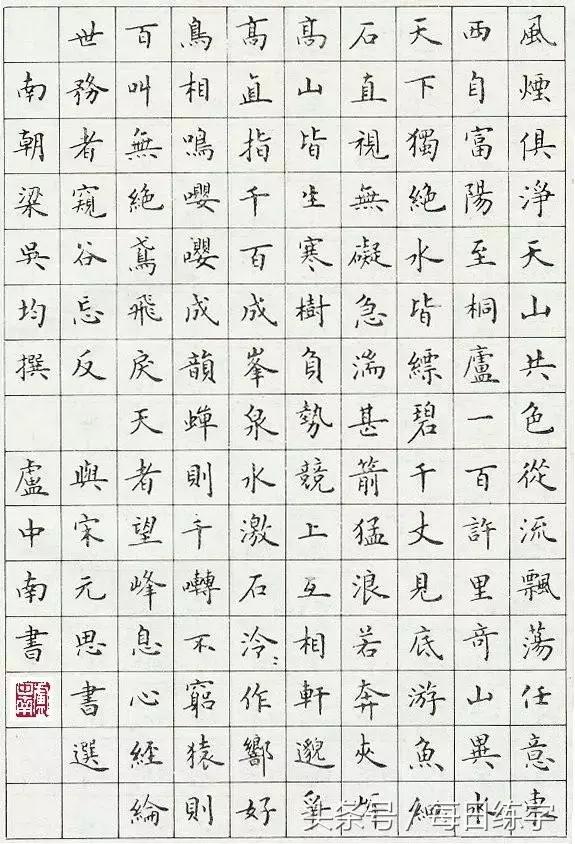 風煙俱淨天山共色從流飄蕩任意東
西自富陽至桐廬一百許里奇山異水
天下獨絕水皆縹碧千丈見底游魚細
石直視無礙急湍甚箭猛浪若奔夾岸
高山皆生寒樹負勢競上互相軒邈爭
高直指千百成峯泉水激石泠〻作響好
鳥相鳴嚶嚶成韻蟬則千囀不窮猿則
百叫無絕鳶飛戾天者望峰息心經綸
世務者窺谷忘反 與宋元思書選
南朝梁吳均撰 盧中南書
头条号/每日练字